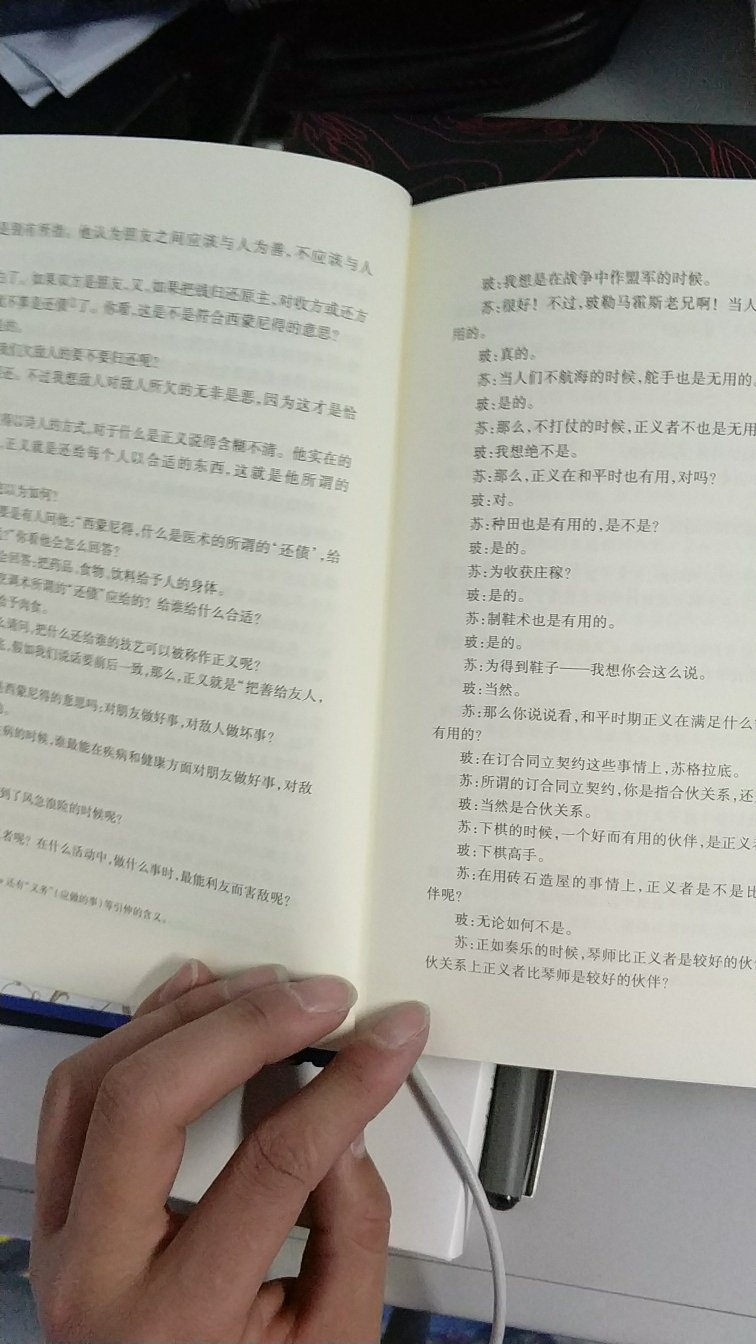 是很有所指。他认为朋友之间应该与人为善,不应该与人
白了。如果双方是朋友,又,如果把钱归还原主,对收方或还方
就不算是还债①了。你看,这是不是符合西蒙尼得的意思?
是的。
我们欠敌人的要不要归还呢?
还。不过我想敌人对敌人所欠的无非是恶,因为这才是恰
得以诗人的方式,对于什么是正义说得含糊不清。他实在的
,正义就是还给每个人以合适的东西,这就是他所谓的
以为如何?
要是有人问他:“西蒙尼得,什么是医术的所谓的‘还债’,给
?”你看他会怎么回答?
会回答:把药品、食物、饮料给予人的身体。
烹调术所谓的“还债”应给的?给谁给什么合适?
给予肉食。
么请问,把什么还给谁的技艺可以被称作正义呢?
,假如我们说话要前后一致,那么,正义就是“把善给友人,
是西蒙尼得的意思吗:对朋友做好事,对敌人做坏事?
病的时候,谁最能在疾病和健康方面对朋友做好事,对敌
到了风急浪险的时候呢?
者呢?在什么活动中,做什么事时,最能利友而害敌呢?
还有“义务”(应做的事)等引伸的含义。
玻:我想是在战争中作盟军的时候。
苏:很好!不过,玻勒马霍斯老兄啊!当人
用的。
玻:真的。
苏:当人们不航海的时候,舵手也是无用的。
玻:是的。
苏:那么,不打仗的时候,正义者不也是无用
玻:我想绝不是。
苏:那么,正义在和平时也有用,对吗?
玻:对。
苏:种田也是有用的,是不是?
玻:是的。
苏:为收获庄稼?
玻:是的。
苏:制鞋术也是有用的。
玻:是的。
苏:为得到鞋子——我想你会这么说。
玻:当然。
苏:那么你说说看,和平时期正义在满足什么
有用的?
玻:在订合同立契约这些事情上,苏格拉底。
苏:所谓的订合同立契约,你是指合伙关系,还
玻:当然是合伙关系。
苏:下棋的时候,一个好而有用的伙伴,是正义
玻:下棋高手。
苏:在用砖石造屋的事情上,正义者是不是比
伴呢?
玻:无论如何不是。
苏:正如奏乐的时候,琴师比正义者是较好的伙
伙关系上正义者比琴师是较好的伙伴?